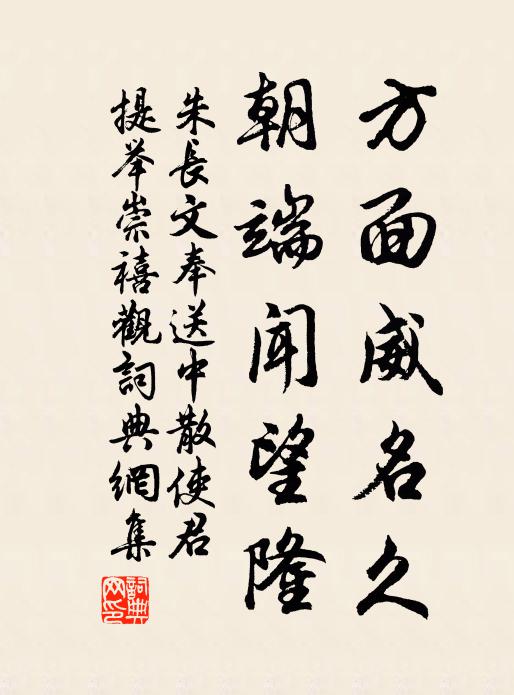 方面威名久
朝端闻望隆
朱長文奉送中散使君
提举崇禧觀詞典網集
詞典網印